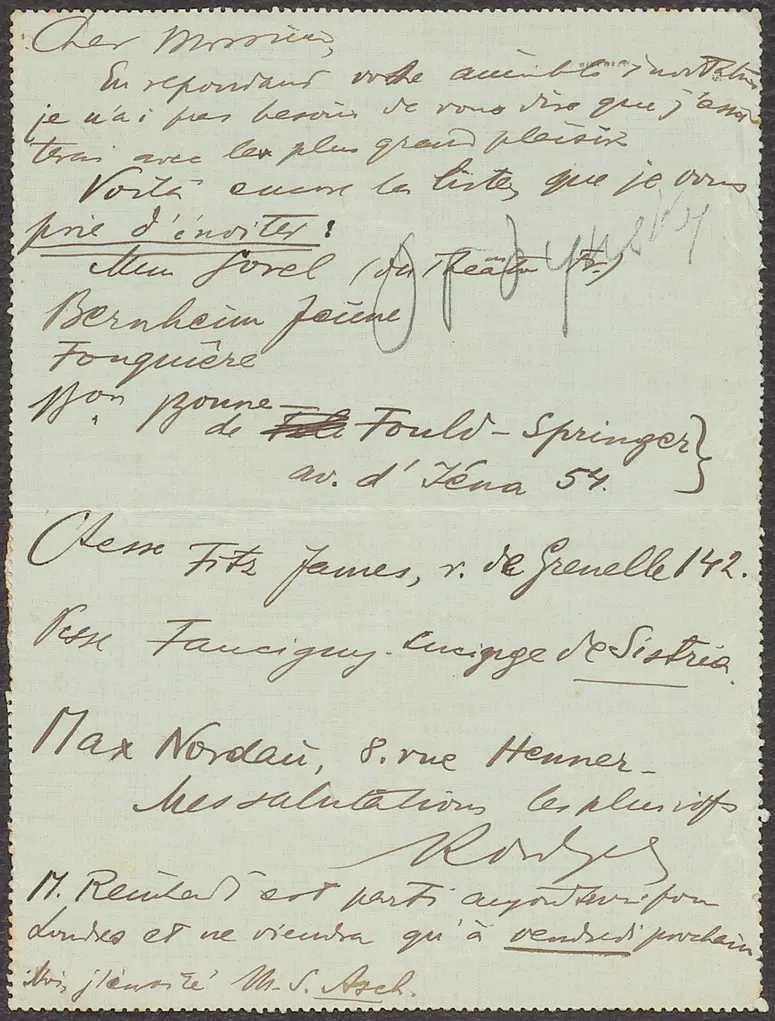 Cher Monsieur,
En repondand votre aimable invitation
je n'ai pas besoin de vous dire que j'assis-
terai avec les plus grand plaisir
Voilà encore la liste, que je vous
prie d'inviter:
Mme Sorel (du Théâtre Fr.)
Bernheim Jeune
Fouquière
Bon
de Fould-Springer
av. d'Iéna 54.
Ctesse Fitz James, r. de Grenelle 142.
Faucigny-Lucinge de Sistria.
Max Nordau, 8. rue Henner-
Mes salutations les plus vifs
M. Reinhardt est parti aujourd'hui pour
Londres et ne viendra qu'à vendredi prochain
j'invité M. S. Asch.